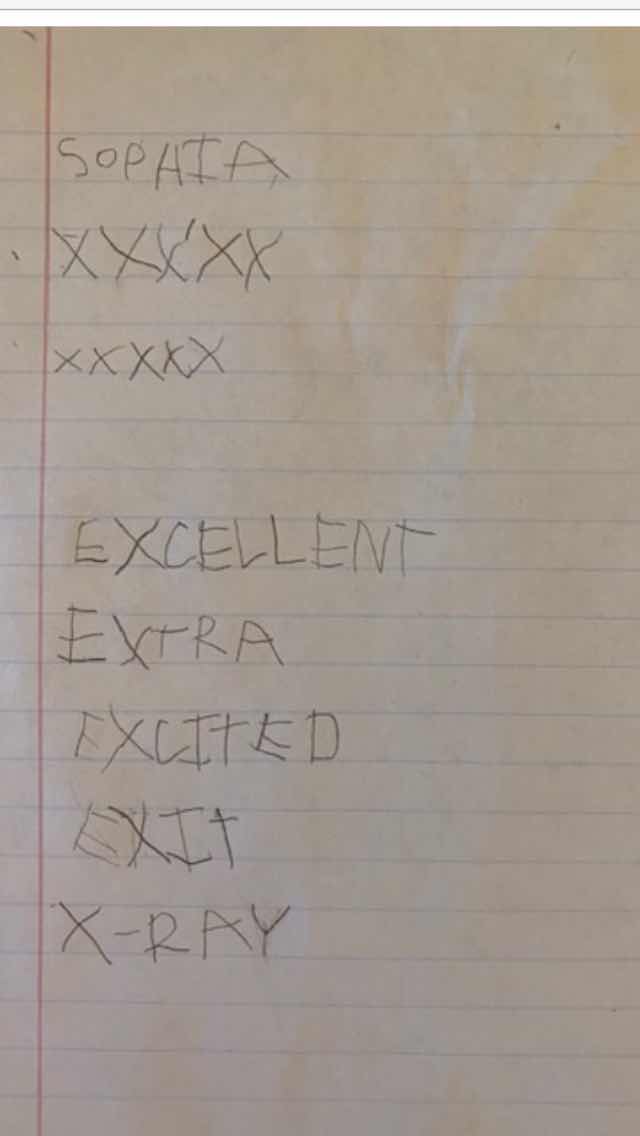 SOPHIA
XXXXX
xxxxx
EXCELLENT
EXTRA
EXCITED
EXIT
X-RAY